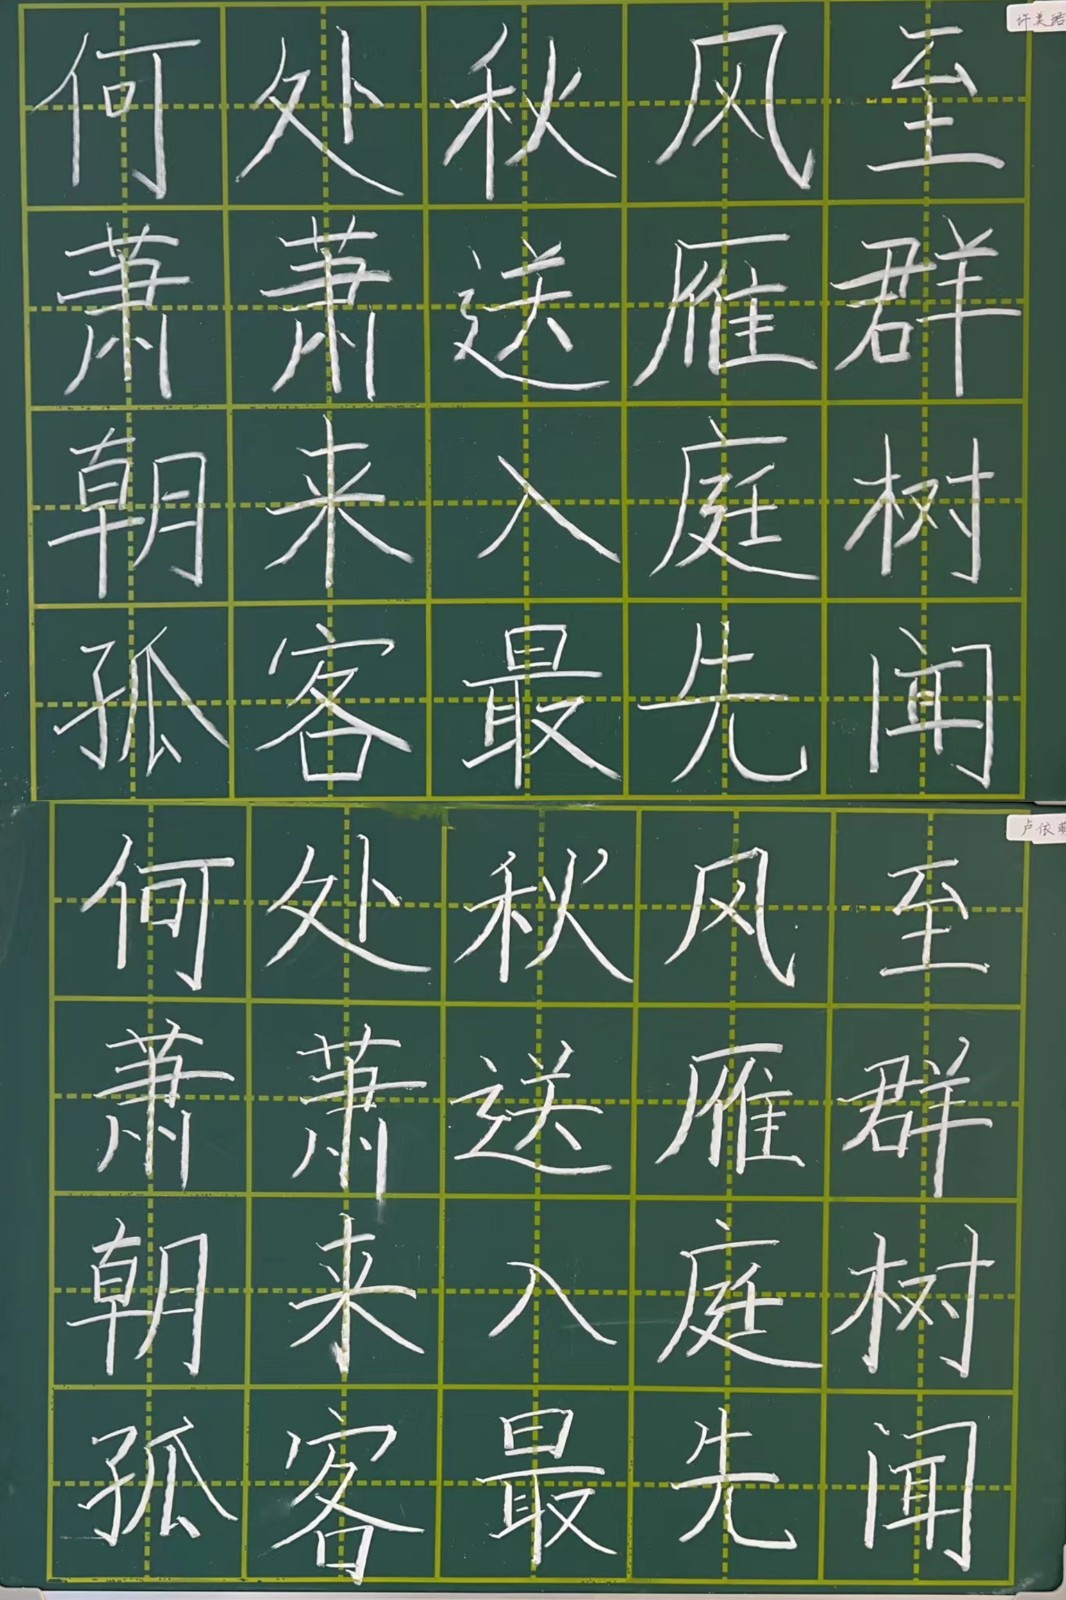 何处秋风至
萧萧送雁群
朝来入庭树
孤客最先闻
何处秋风至
萧萧送雁群
朝来入庭树
孤客最先闻